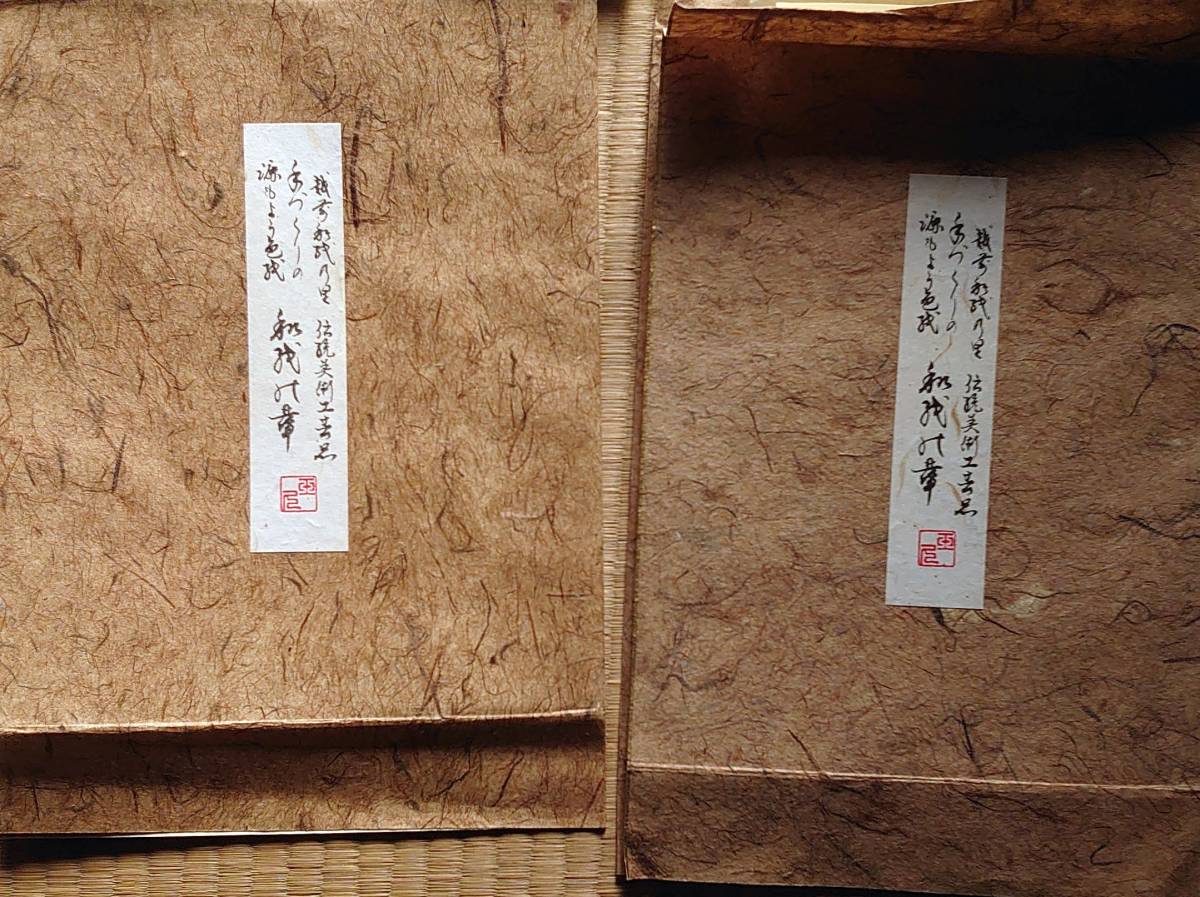 越前和紙の里 伝統美術工芸品
手づくりの
漉もよう色紙
和紙の章
越前和紙の里 伝統美術工芸品
手づくりの
漉もよう色紙
和紙の章